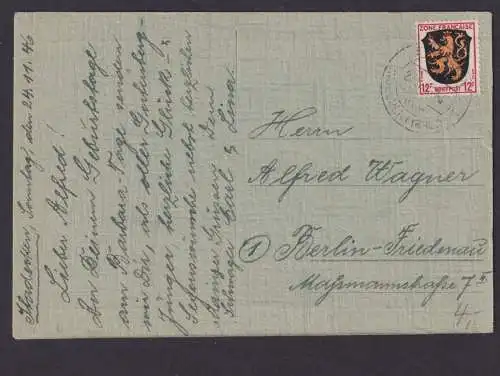 Sonntag den 24.11.46
Lieber Alfred!
Zu Deinem Geburtstage
am Barbara Tage senden
wir Dir, als alter
Jünger, herzliche Glücks- &
Segenswünsche nebst herzlichen
Grüssen Dein
Schwager Karl & Lina.
ZONE FRANÇAISE
12 Pf BRIEFPOST 12 Pf
Herrn
Alfred Wagner
1 Berlin-Friedenau
Maßmannstraße 7 II
4.-